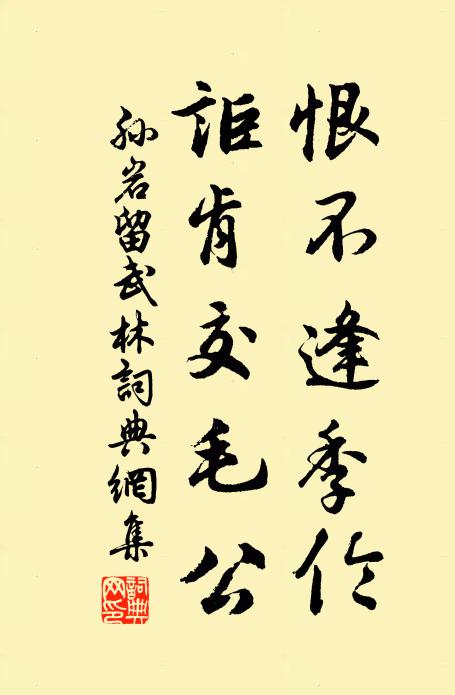 恨不逢季伶
詎肯交毛公
孙岩留武林詞典網集
詞典网印